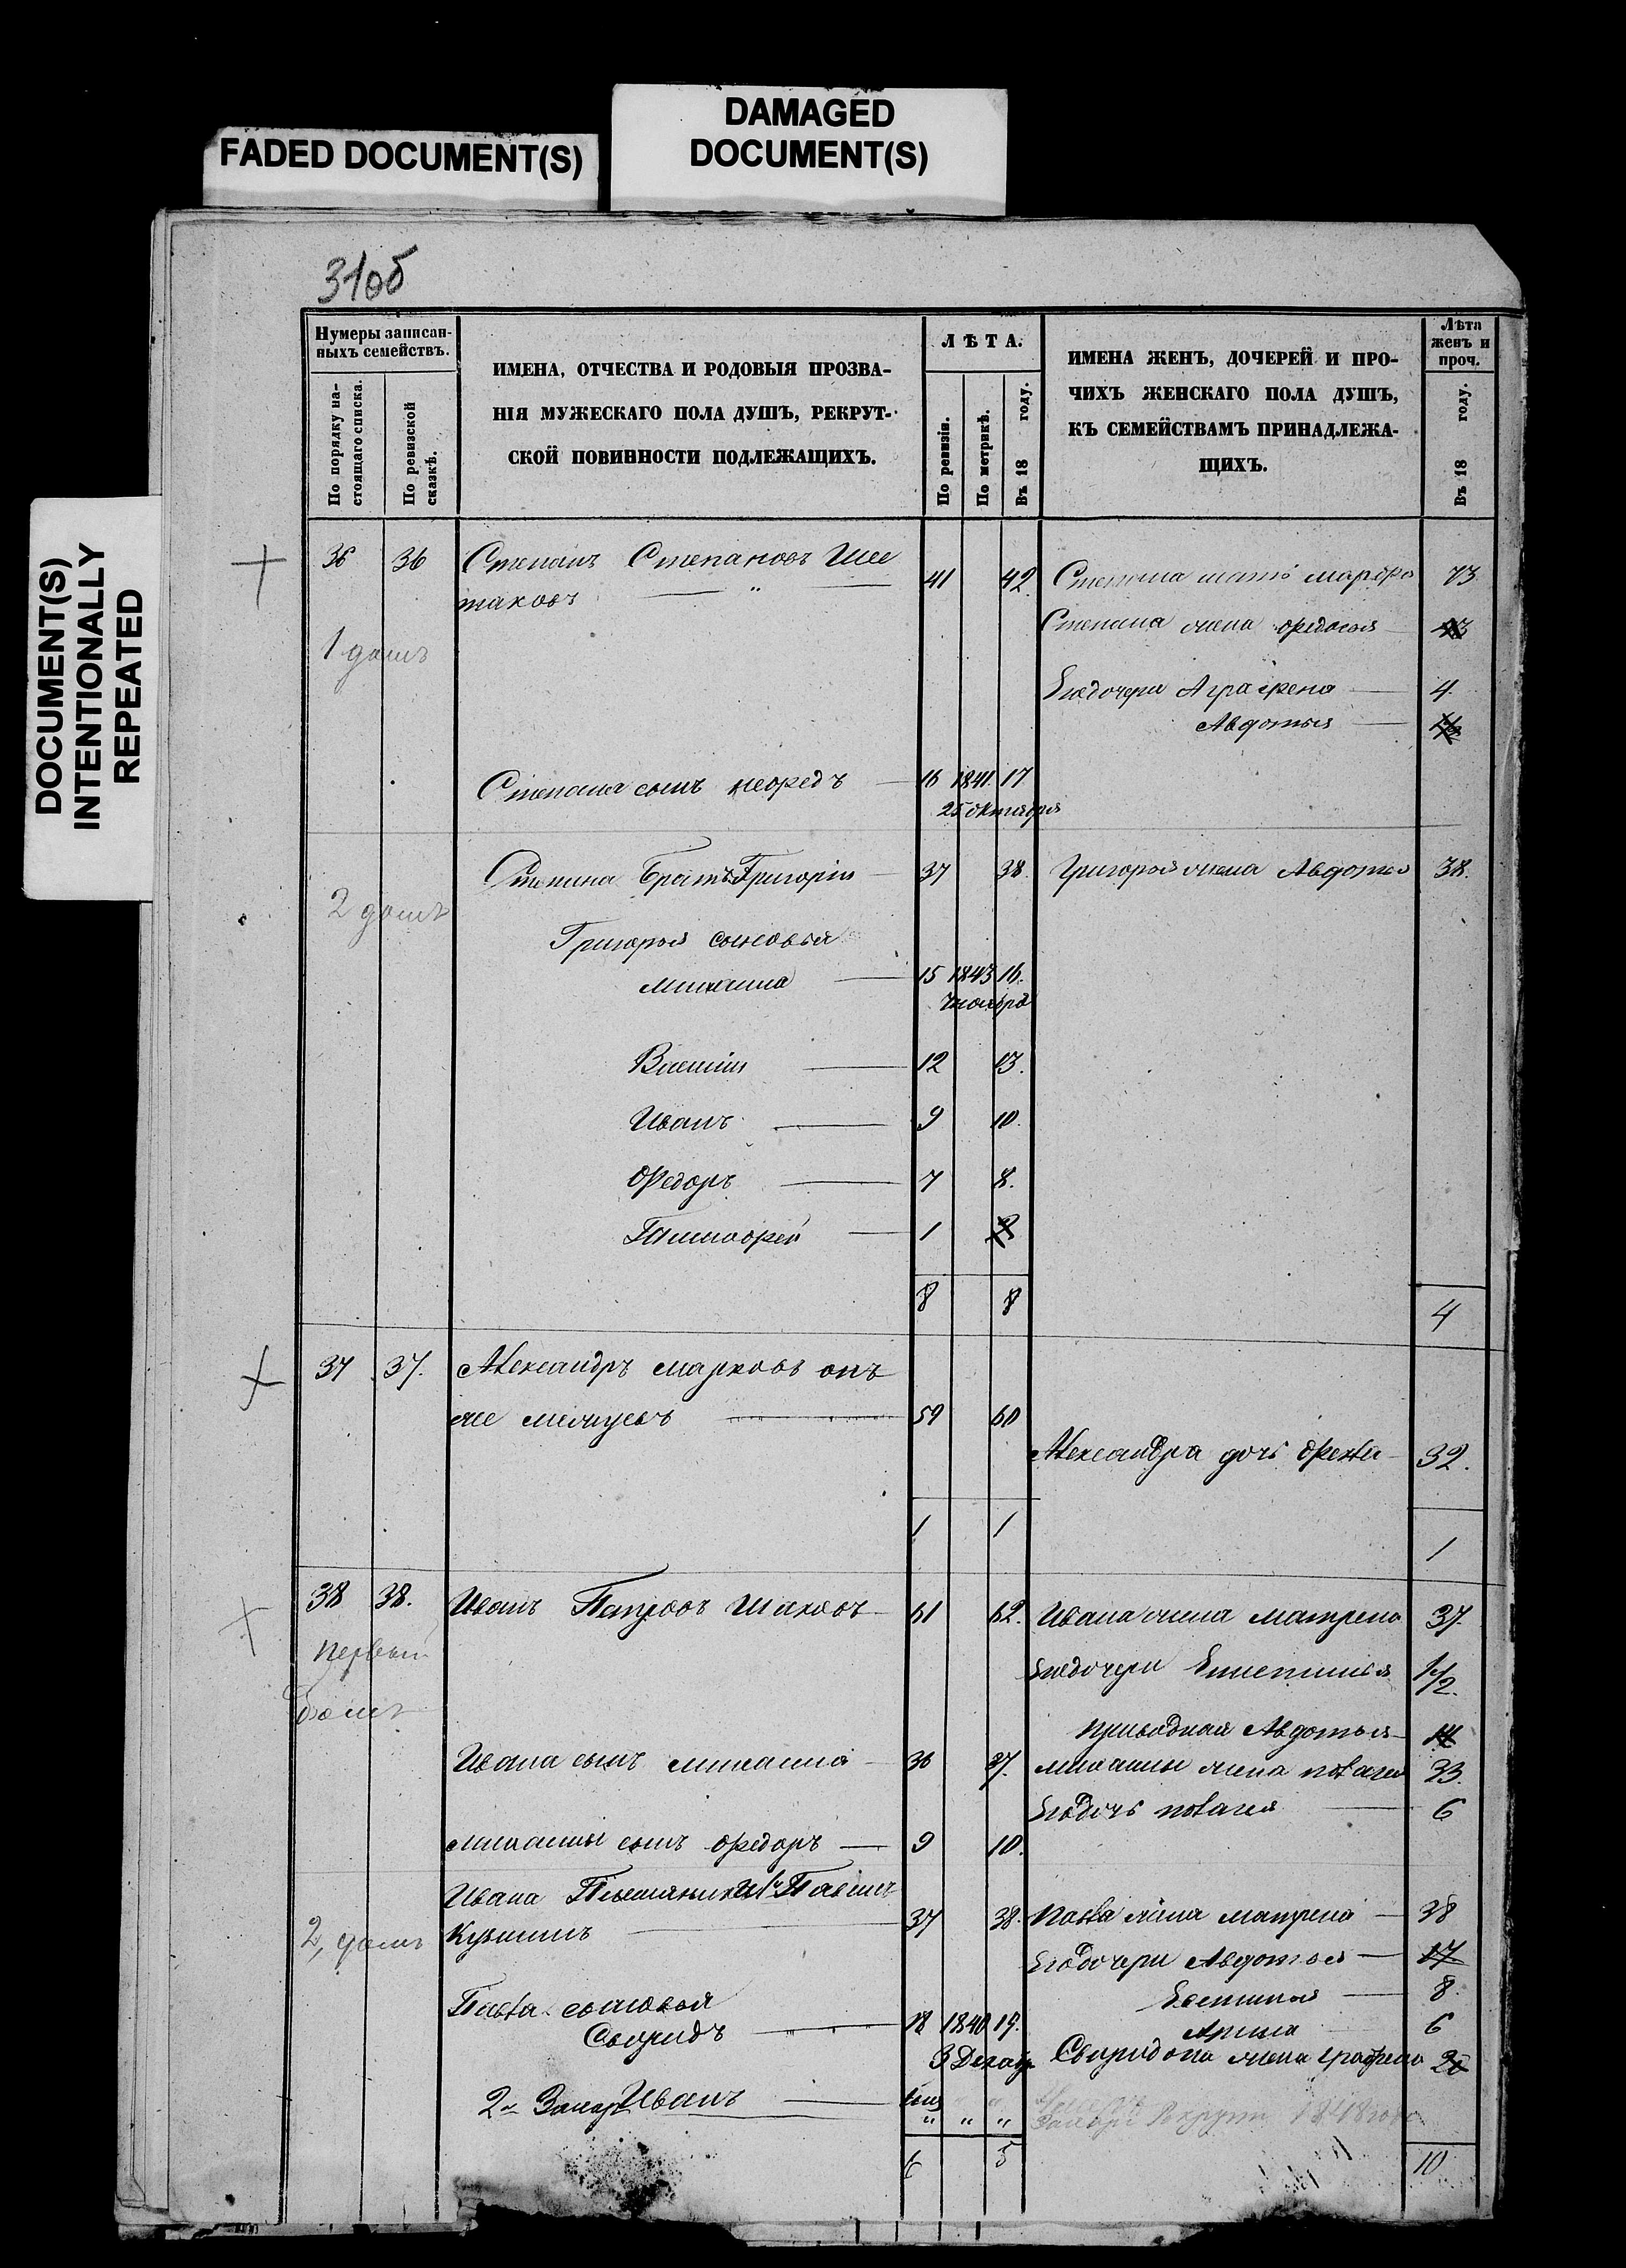 DAMAGED
DOCUMENT(S)
FADED DOCUMENT(S)
DOCUMENT(S)
INTENTIONALLY
REPEATED
31об
Нумеры записан-
ныхъ семействъ.
По порядку на-
стоящаго списка.
По ревизской
сказкѣ.
ИМЕНА, ОТЧЕСТВА И РОДОВЫЯ ПРОЗВА-
НІЯ МУЖЕСКАГО ПОЛА ДУШЪ, РЕКРУТ-
СКОЙ ПОВИННОСТИ ПОДЛЕЖАЩИХЪ.
ЛѢТА.
По ревизіи.
По метрикѣ.
Въ 18 году.
ИМЕНА ЖЕНЪ, ДОЧЕРЕЙ И ПРО-
ЧИХЪ ЖЕНСКАГО ПОЛА ДУШЪ,
КЪ СЕМЕЙСТВАМЪ ПРИНАДЛЕЖА-
ЩИХЪ.
Лѣта
женъ и
проч.
Въ 18 году.
36 36 Степанъ Степановъ Ше
таковъ 41 42. Степана мать марфа 73
Степана жена федосья 43
1 домъ
Егодочери Аграфена 4.
Авдотья
Степана сынъ нефедъ 16 1841. 17
25 октября
2 домъ
Степана Братъ Григорій 37 38. Григорья жена Авдотья 38.
Григорья сыновья
михаила 15 1843 16.
ноября
Василій 12 13.
Иванъ 9 10.
Федоръ 7 8.
Тимофей 1
8 8 4
37 37. Александръ марковъ онъ
же 59 60
Александра дочь фекла 32.
1 1 1
38 38. Иванъ Петровъ Шаховъ 61 62. Ивана жена матрена 37.
первый
домъ
Егодочери Епистинья 1/2.
приводная Авдотья 14
Ивана сынъ михаила 36 37. михаилы жена пелагея 33.
Егодочь пелагея 6
михаилы сынъ федоръ 9 10.
Ивана Племянникъ Павелъ
2, домъ Кузминъ 37 38. Павла жена матрена 38
Егодочери Авдотья 17
Павла сыновья
Устинья 8.
Свиридъ 18 1840 19. Арина 6
3 Декаб Свиридона жена графена 20
2й Захаръ Иванъ
6 5 10